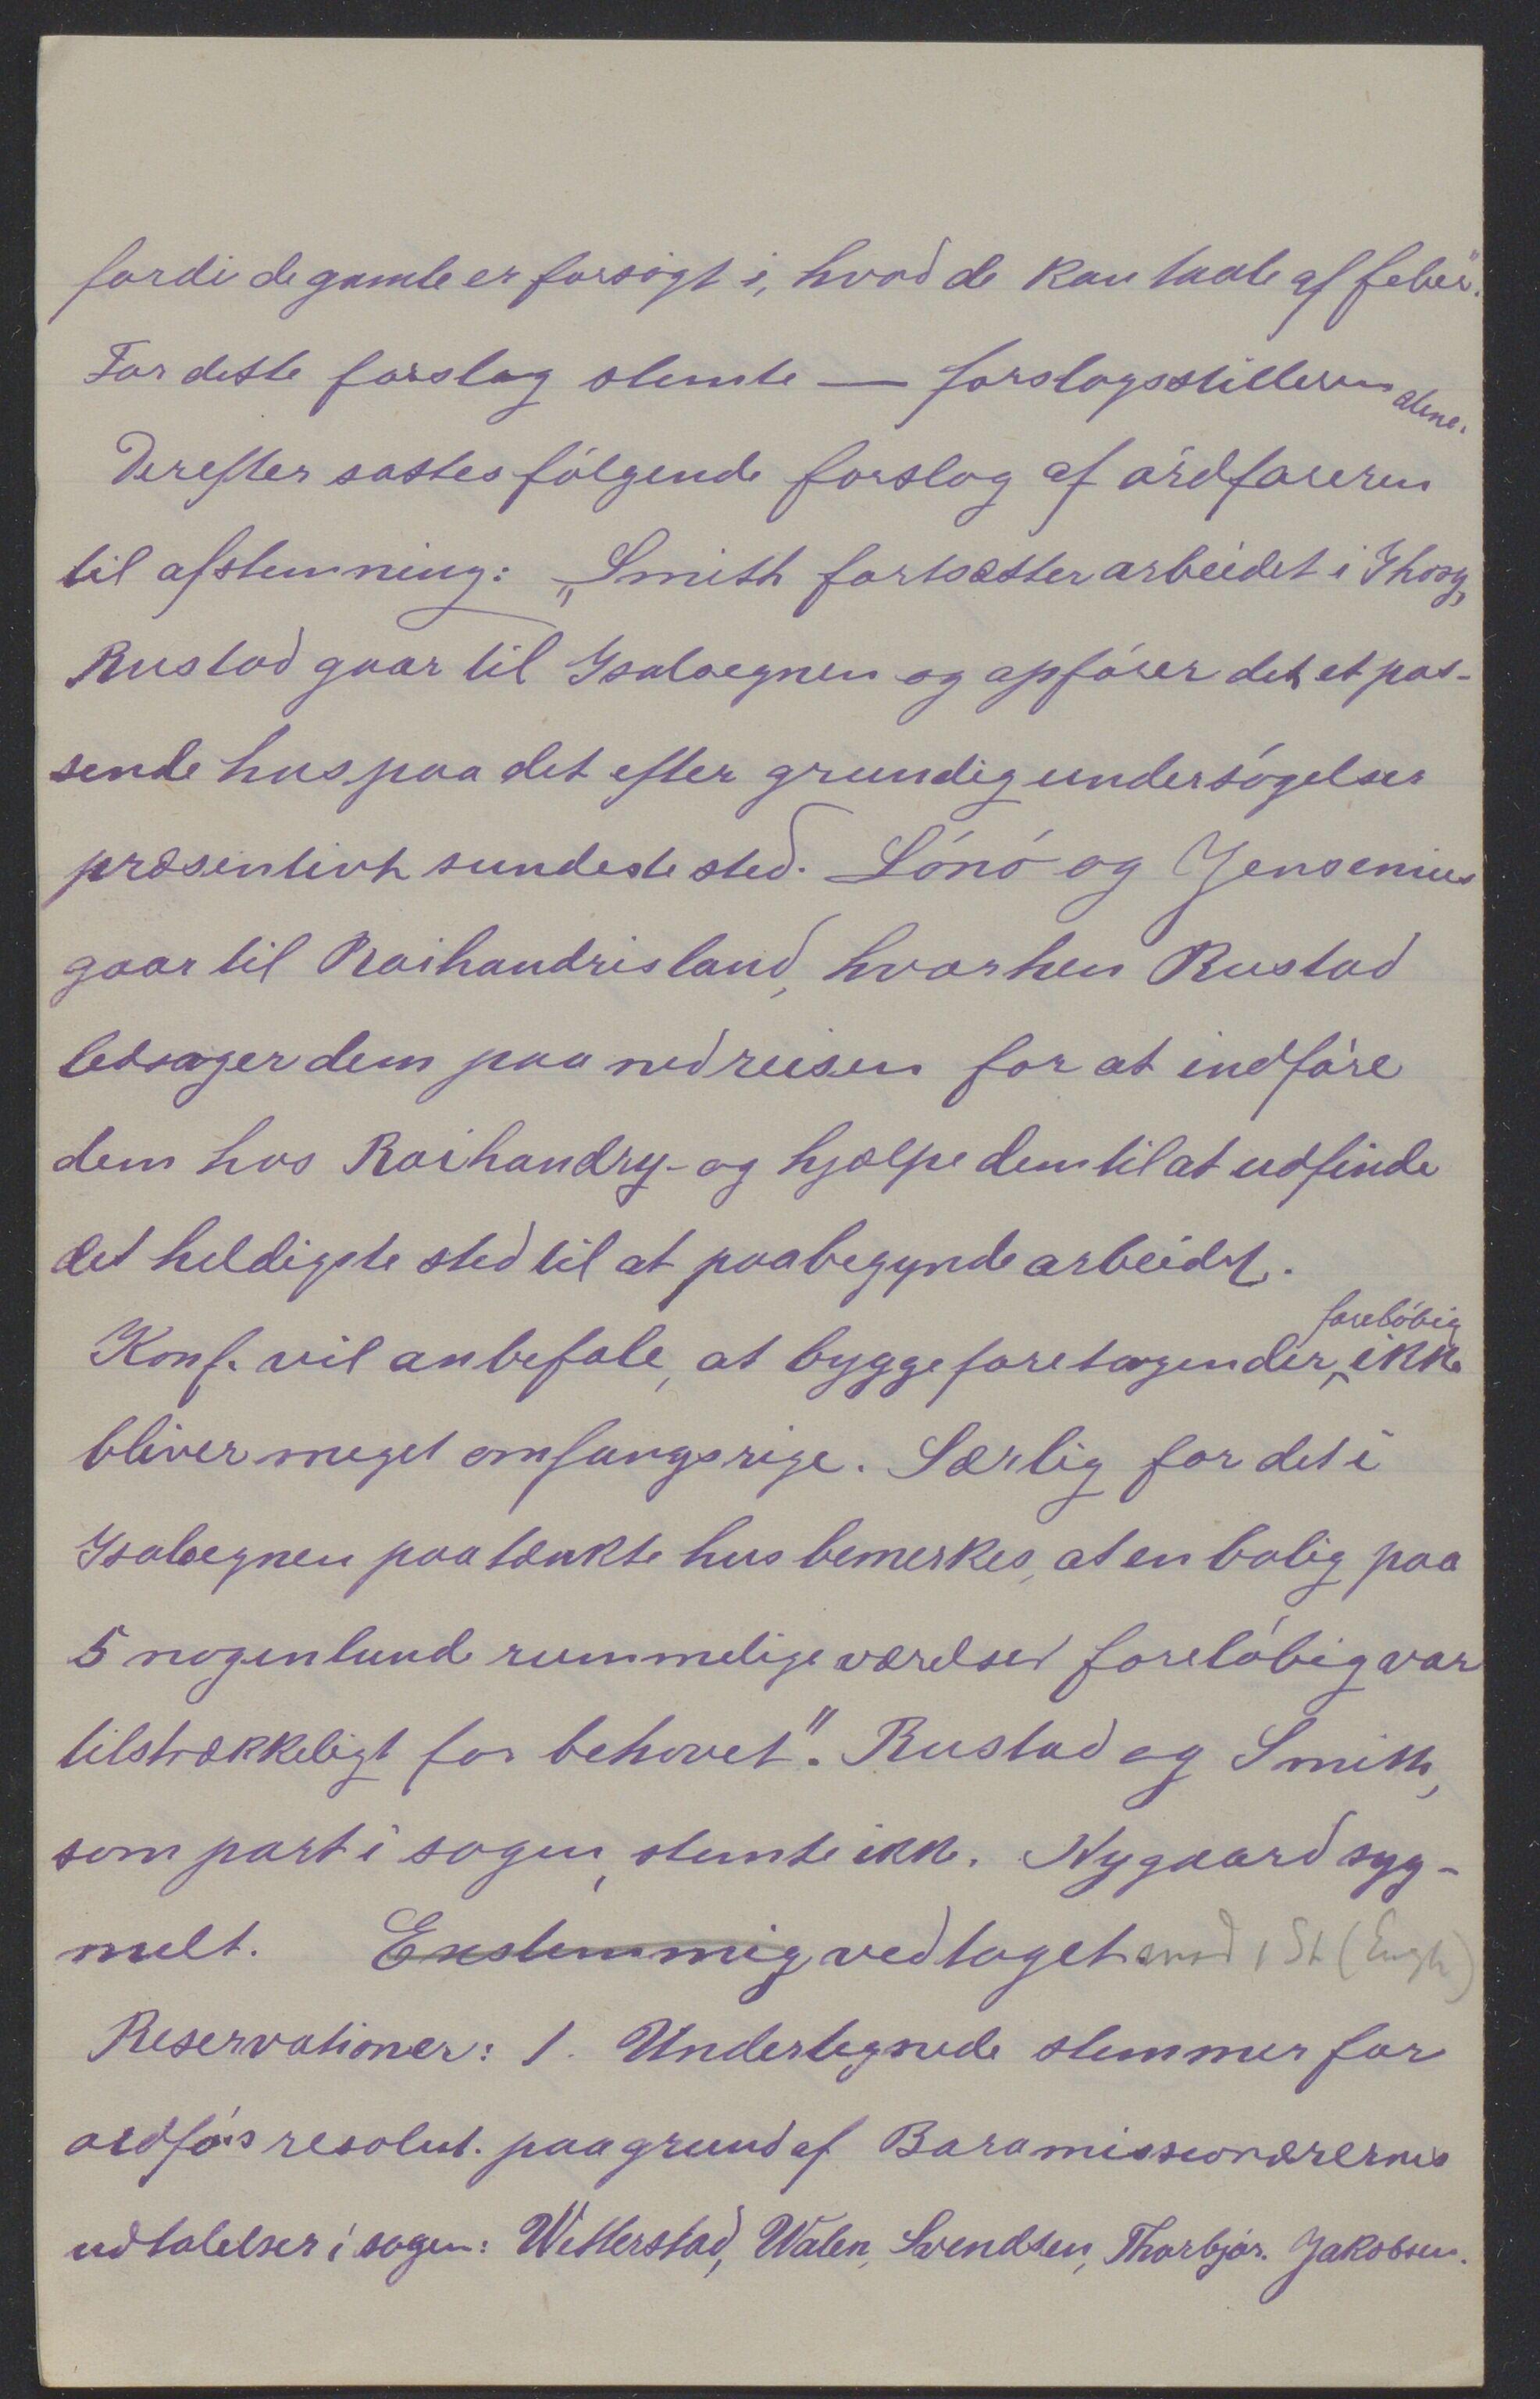 fordi de gamle er forsøgt i, hvad de kan taale af feber".
For dette forslag stemte — forslagsstilleren alene.
Derefter sattes følgende forslag af ordføreren
til afstemning: „Smith fortsætter arbeidet i Ihosy,
Rustad gaar til Isaloegnen og opfører det et pas-
sende hus paa det efter grundig undersøgelser
præsentivt sundeste sted. Lønø og Jensenius
gaar til Raihandrisland, hvorhen Rustad
ledsager dem paa nedreisen for at indføre
dem hos Raihandry- og hjælpe dem til at udfinde
det heldigste sted til at paabegynde arbeidet.
Konf. vil anbefale, at byggeforetagender foreløbig ikke
bliver meget omfangsrige. Særlig for det i
Isaloegnen paatænkte hus bemerkes, at en bolig paa
5 nogenlund rummelige værelser foreløbig var
tilstrækkeligt for behovet". Rustad og Smith,
som part i sagen, stemte ikke. Nygaard syg-
melt. Enstemmig vedtaget mod 1 St (Engh)
Reservationer: 1. Undertegnede stemmer for
ordfø's resolut. paa grund af Baramissionærernes
udtalelser i sagen: Wetterstad, Walen, Svendsen, Thorbjør. Jakobsen.